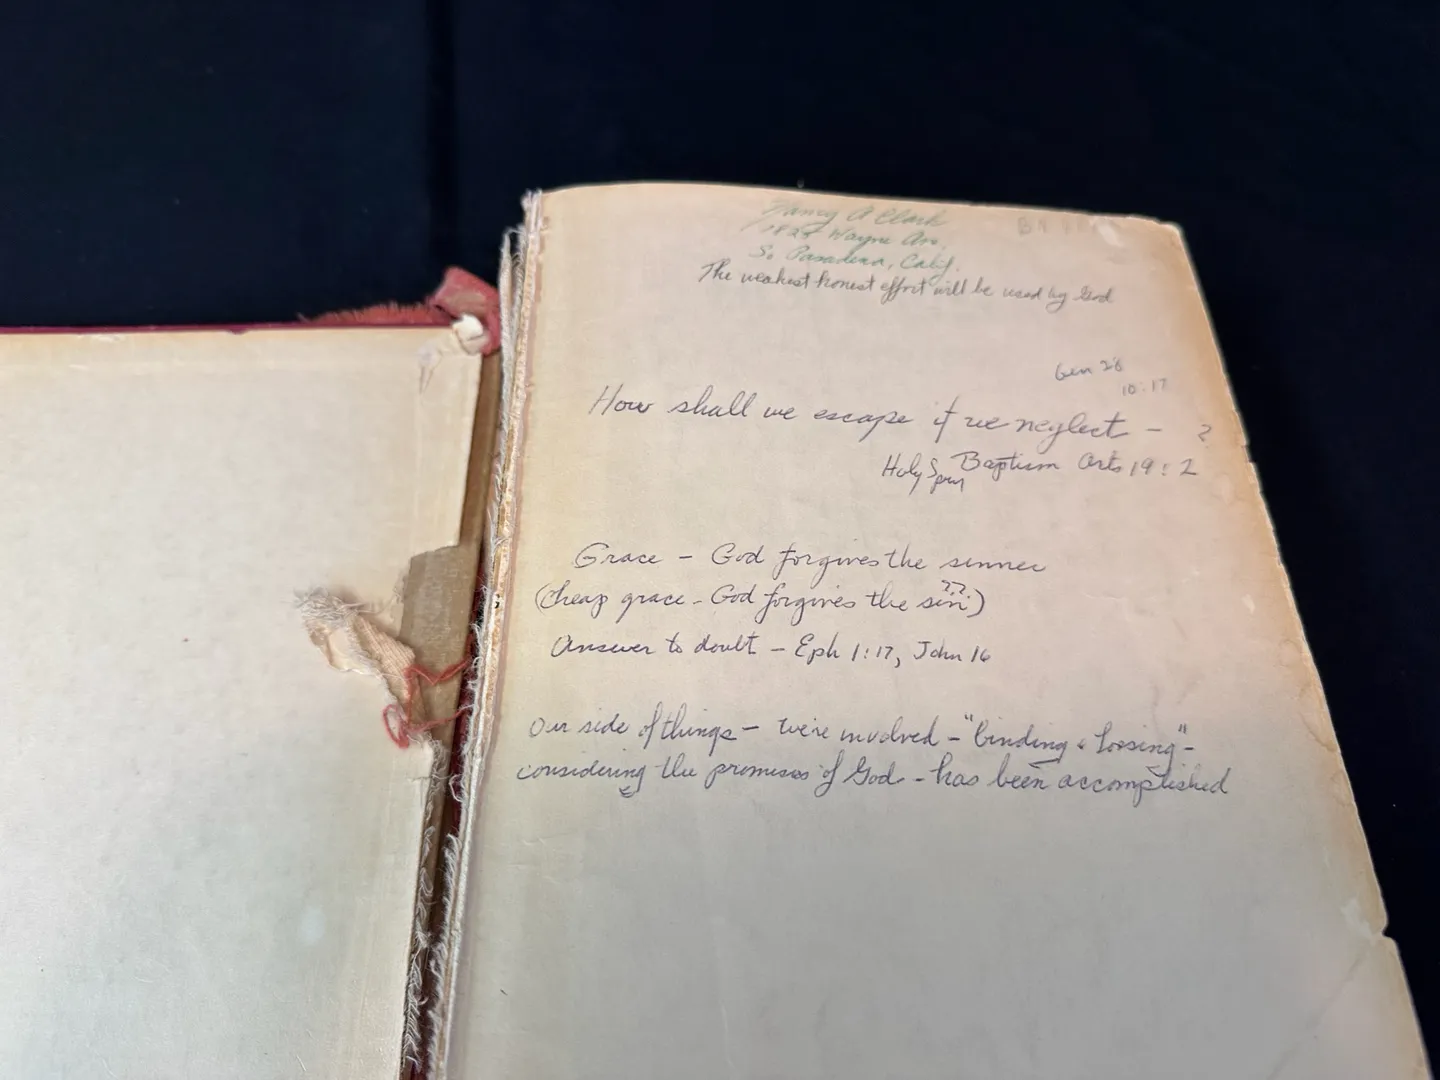 Nancy A Clark
Wayne Ave.
So Pasadena, Calif.
The weakest honest effort will be used by God
Gen 28
10:17
How shall we escape if we neglect – ?
Holy Baptism Acts 19:2
Grace – God forgives the sinner
(Cheap grace – God forgives the sin??)
Answer to doubt – Eph 1:17, John 16
Our side of things – we're involved – "binding & loosing" –
considering the promises of God – has been accomplished